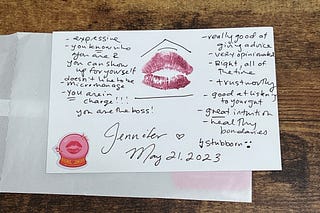 - expressive
- you know who
you are &
you can show
up for yourself
doesn't like to be
micromanage
- you are in
charge!!!
you are the boss!
- really good at
giving advice
- very opinionated
- Right, all of
the time
- trustworthy
- good at listening
to your gut
- great intuition
- healthy
boundaries
↳ stubborn
Jennifer ♡
May 21, 2023